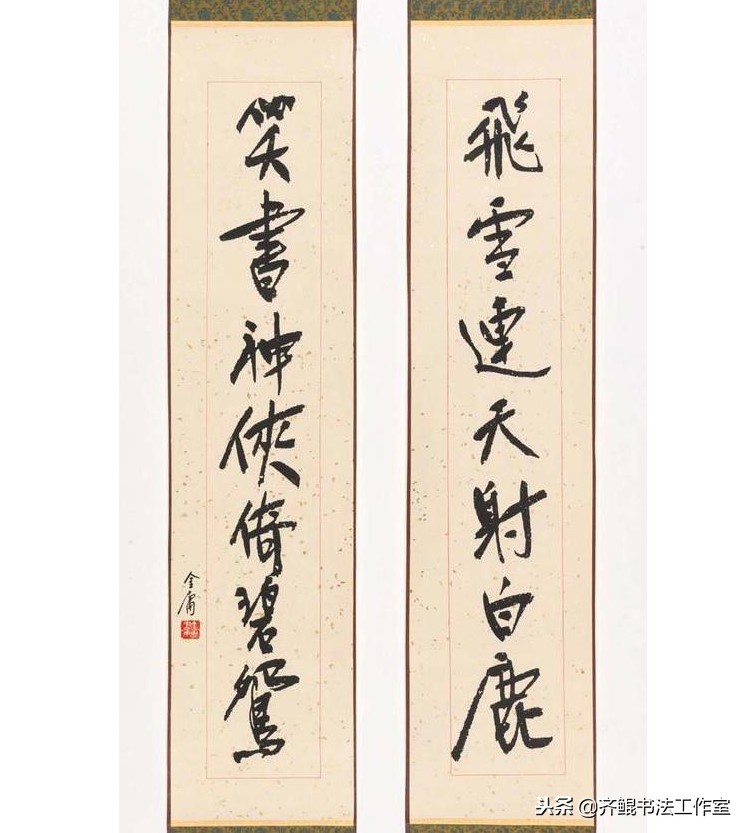 飛雪連天射白鹿
笑書神俠倚碧鴛
金庸
头条 @齐鲲书法工作室